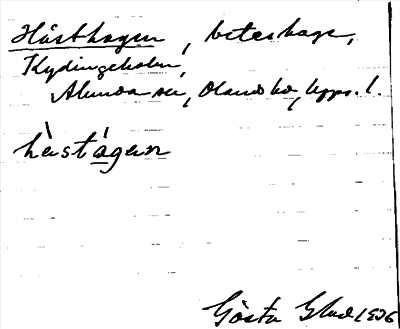 Hästhagen, beteshage,
Kydingeholm,
Alunda sn, Olands hd, Upps. l.
hàstágan
Gösta Glad 1936